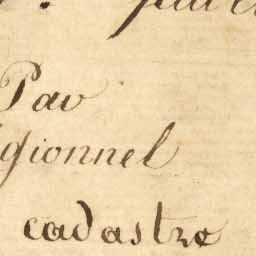 Pav
gionnel
cadastre